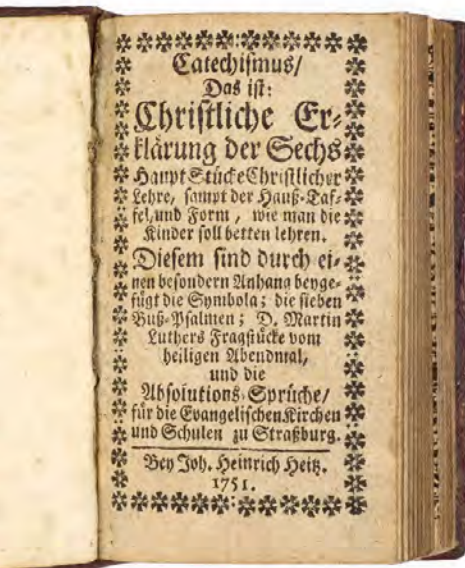 Catechismus/
Das ist:
Christliche Er-
klärung der Sechs
Haupt Stücke Christlicher
Lehre, sampt der Hauß-Taf-
fel, und Form, wie man die
Kinder soll betten lehren.
Diesem sind durch ei-
nen besondern Anhang beyge-
fügt die Symbola; die sieben
Buß-Psalmen; D. Martin
Luthers Fragstücke vom
heiligen Abendmal,
und die
Absolutions-Sprüche/
für die Evangelischen Kirchen
und Schulen zu Straßburg.
Bey Joh. Heinrich Heitz.
1751.